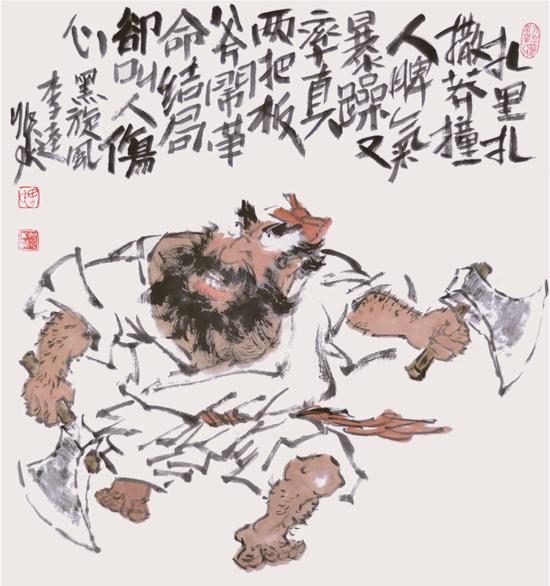 扎里扎
撒莽撞
人脾氣
暴躁又
率真
两把板
斧鬧革
命结局
卻叫人傷
心 黑旋风
李逵